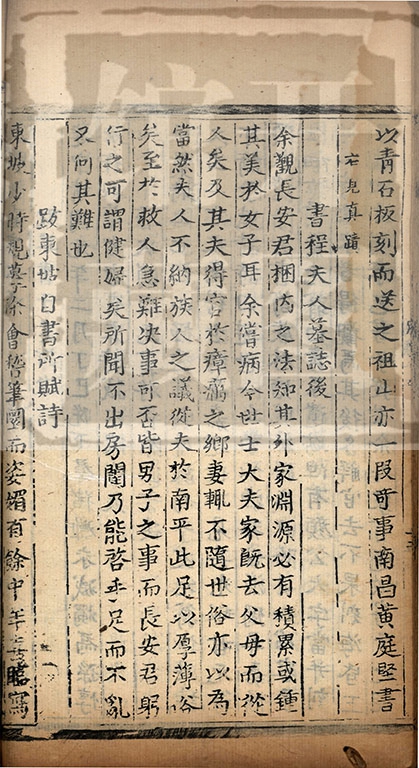 以青石板刻而送之祖山亦一段奇事南昌黃庭堅書
右見真蹟
書程夫人墓誌後
余觀長安君梱內之法知其外家淵源必有積累或鍾
其美於女子耳余嘗病今世士大夫家既去父母而從
人矣及其夫得官於瘴癘之鄉妻輒不隨世俗亦以為
當然夫人不納族人之議從夫於南平此足以厚薄俗
矣至於救人急難决事可否皆男子之事而長安君躬
行之可謂健婦矣所聞不出房闥乃能啓手足而不亂
又何其難也
跋東坡自書所賦詩
東坡少時規摹徐會稽筆圓而姿媚有餘中年喜臨寫